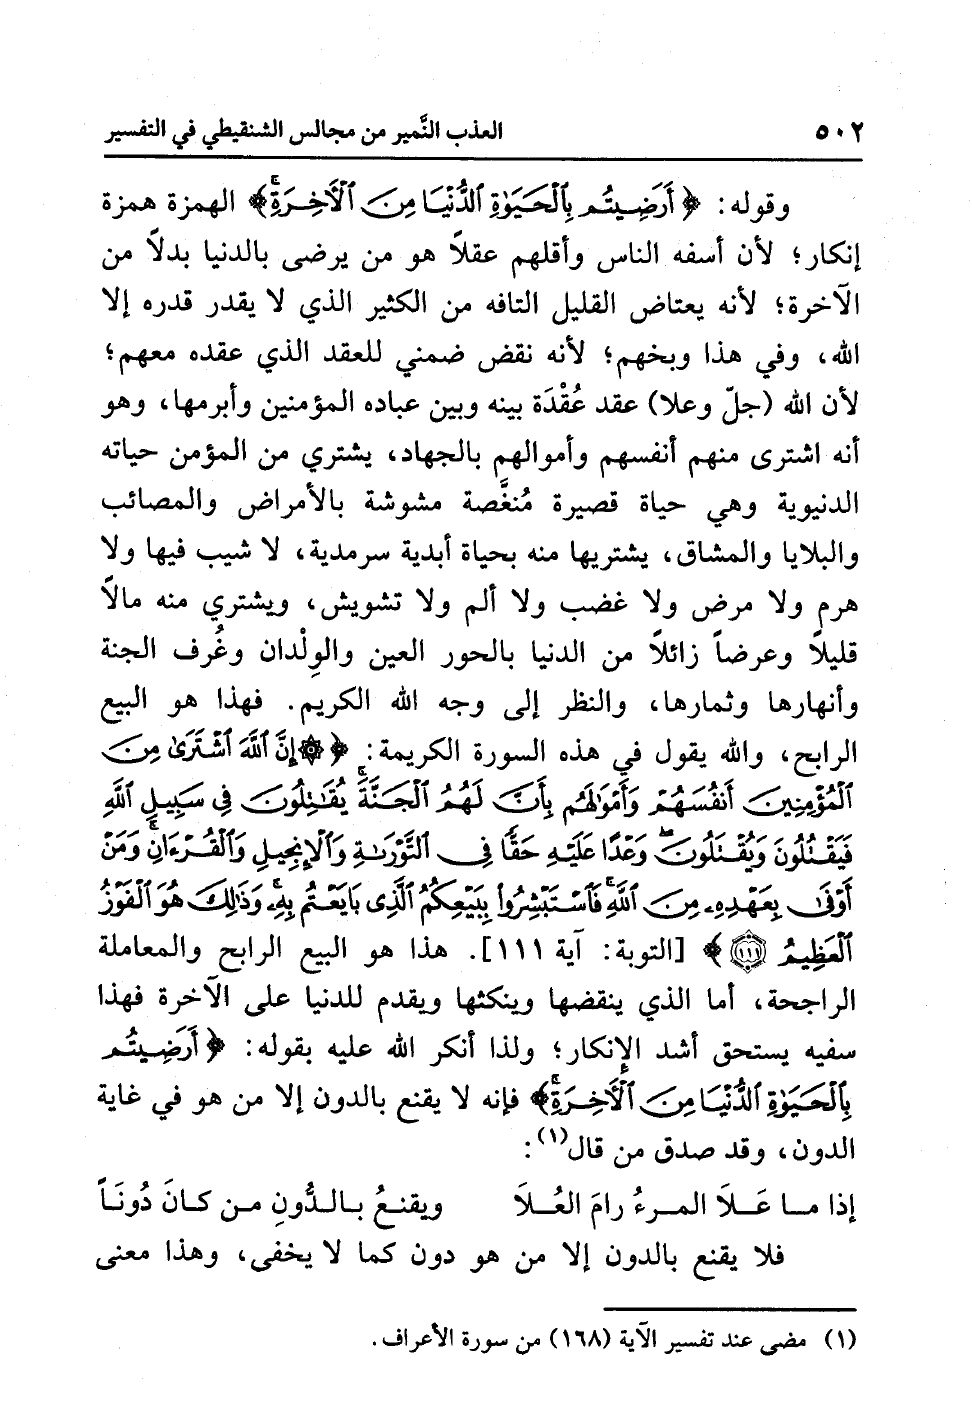 ٥٠٢ العذب النَّمير من مجالس الشنقيطي في التفسير
وقوله: ﴿أَرَضِيتُم بِٱلْحَيَوٰةِ ٱلدُّنْيَا مِنَ ٱلْأَخِرَةِۚ﴾ الهمزة همزة
إنكار؛ لأن أسفه الناس وأقلهم عقلاً هو من يرضى بالدنيا بدلاً من
الآخرة؛ لأنه يعتاض القليل التافه من الكثير الذي لا يقدر قدره إلا
الله، وفي هذا وبخهم؛ لأنه نقض ضمني للعقد الذي عقده معهم؛
لأن الله (جلّ وعلا) عقد عُقْدَة بينه وبين عباده المؤمنين وأبرمها، وهو
أنه اشترى منهم أنفسهم وأموالهم بالجهاد، يشتري من المؤمن حياته
الدنيوية وهي حياة قصيرة مُنغَّصة مشوشة بالأمراض والمصائب
والبلايا والمشاق، يشتريها منه بحياة أبدية سرمدية، لا شيب فيها ولا
هرم ولا مرض ولا غضب ولا ألم ولا تشويش، ويشتري منه مالاً
قليلاً وعرضاً زائلاً من الدنيا بالحور العين والوِلْدان وغُرف الجنة
وأنهارها وثمارها، والنظر إلى وجه الله الكريم. فهذا هو البيع
الرابح، والله يقول في هذه السورة الكريمة: ﴿۞إِنَّ ٱللَّهَ ٱشْتَرَىٰ مِنَ
ٱلْمُؤْمِنِينَ أَنفُسَهُمْ وَأَمْوَٰلَهُم بِأَنَّ لَهُمُ ٱلْجَنَّةَۚ يُقَٰتِلُونَ فِى سَبِيلِ ٱللَّهِ
فَيَقْتُلُونَ وَيُقْتَلُونَۖ وَعْدًا عَلَيْهِ حَقًّا فِى ٱلتَّوْرَىٰةِ وَٱلْإِنجِيلِ وَٱلْقُرْءَانِۚ وَمَنْ
أَوْفَىٰ بِعَهْدِهِۦ مِنَ ٱللَّهِۚ فَٱسْتَبْشِرُوا۟ بِبَيْعِكُمُ ٱلَّذِى بَايَعْتُم بِهِۦۚ وَذَٰلِكَ هُوَ ٱلْفَوْزُ
ٱلْعَظِيمُ ١١١﴾ [التوبة: آية ١١١]. هذا هو البيع الرابح والمعاملة
الراجحة، أما الذي ينقضها وينكثها ويقدم للدنيا على الآخرة فهذا
سفيه يستحق أشد الإنكار؛ ولذا أنكر الله عليه بقوله: ﴿أَرَضِيتُم
بِٱلْحَيَوٰةِ ٱلدُّنْيَا مِنَ ٱلْأَخِرَةِۚ﴾ فإنه لا يقنع بالدون إلا من هو في غاية
الدون، وقد صدق من قال(١):
إذا مـا عَـلاَ المـرءُ رامَ العُـلاَ ويقنـعُ بـالـدُّونِ مـن كـانَ دُونَـاً
فلا يقنع بالدون إلا من هو دون كما لا يخفى، وهذا معنى
(١) مضى عند تفسير الآية (١٦٨) من سورة الأعراف.